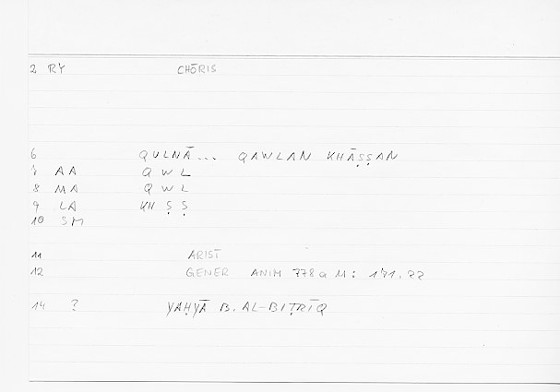 2 RY CHŌRIS
6 QULNĀ... QAWLAN KHĀṢṢAN
7 AA Q W L
8 MA Q W L
9 LA KH Ṣ Ṣ
10 SM
11 ARIST
12 GENER ANIM 778 a 11: 171.22
14 ? YAḤYĀ B. AL-BIṬRĪQ